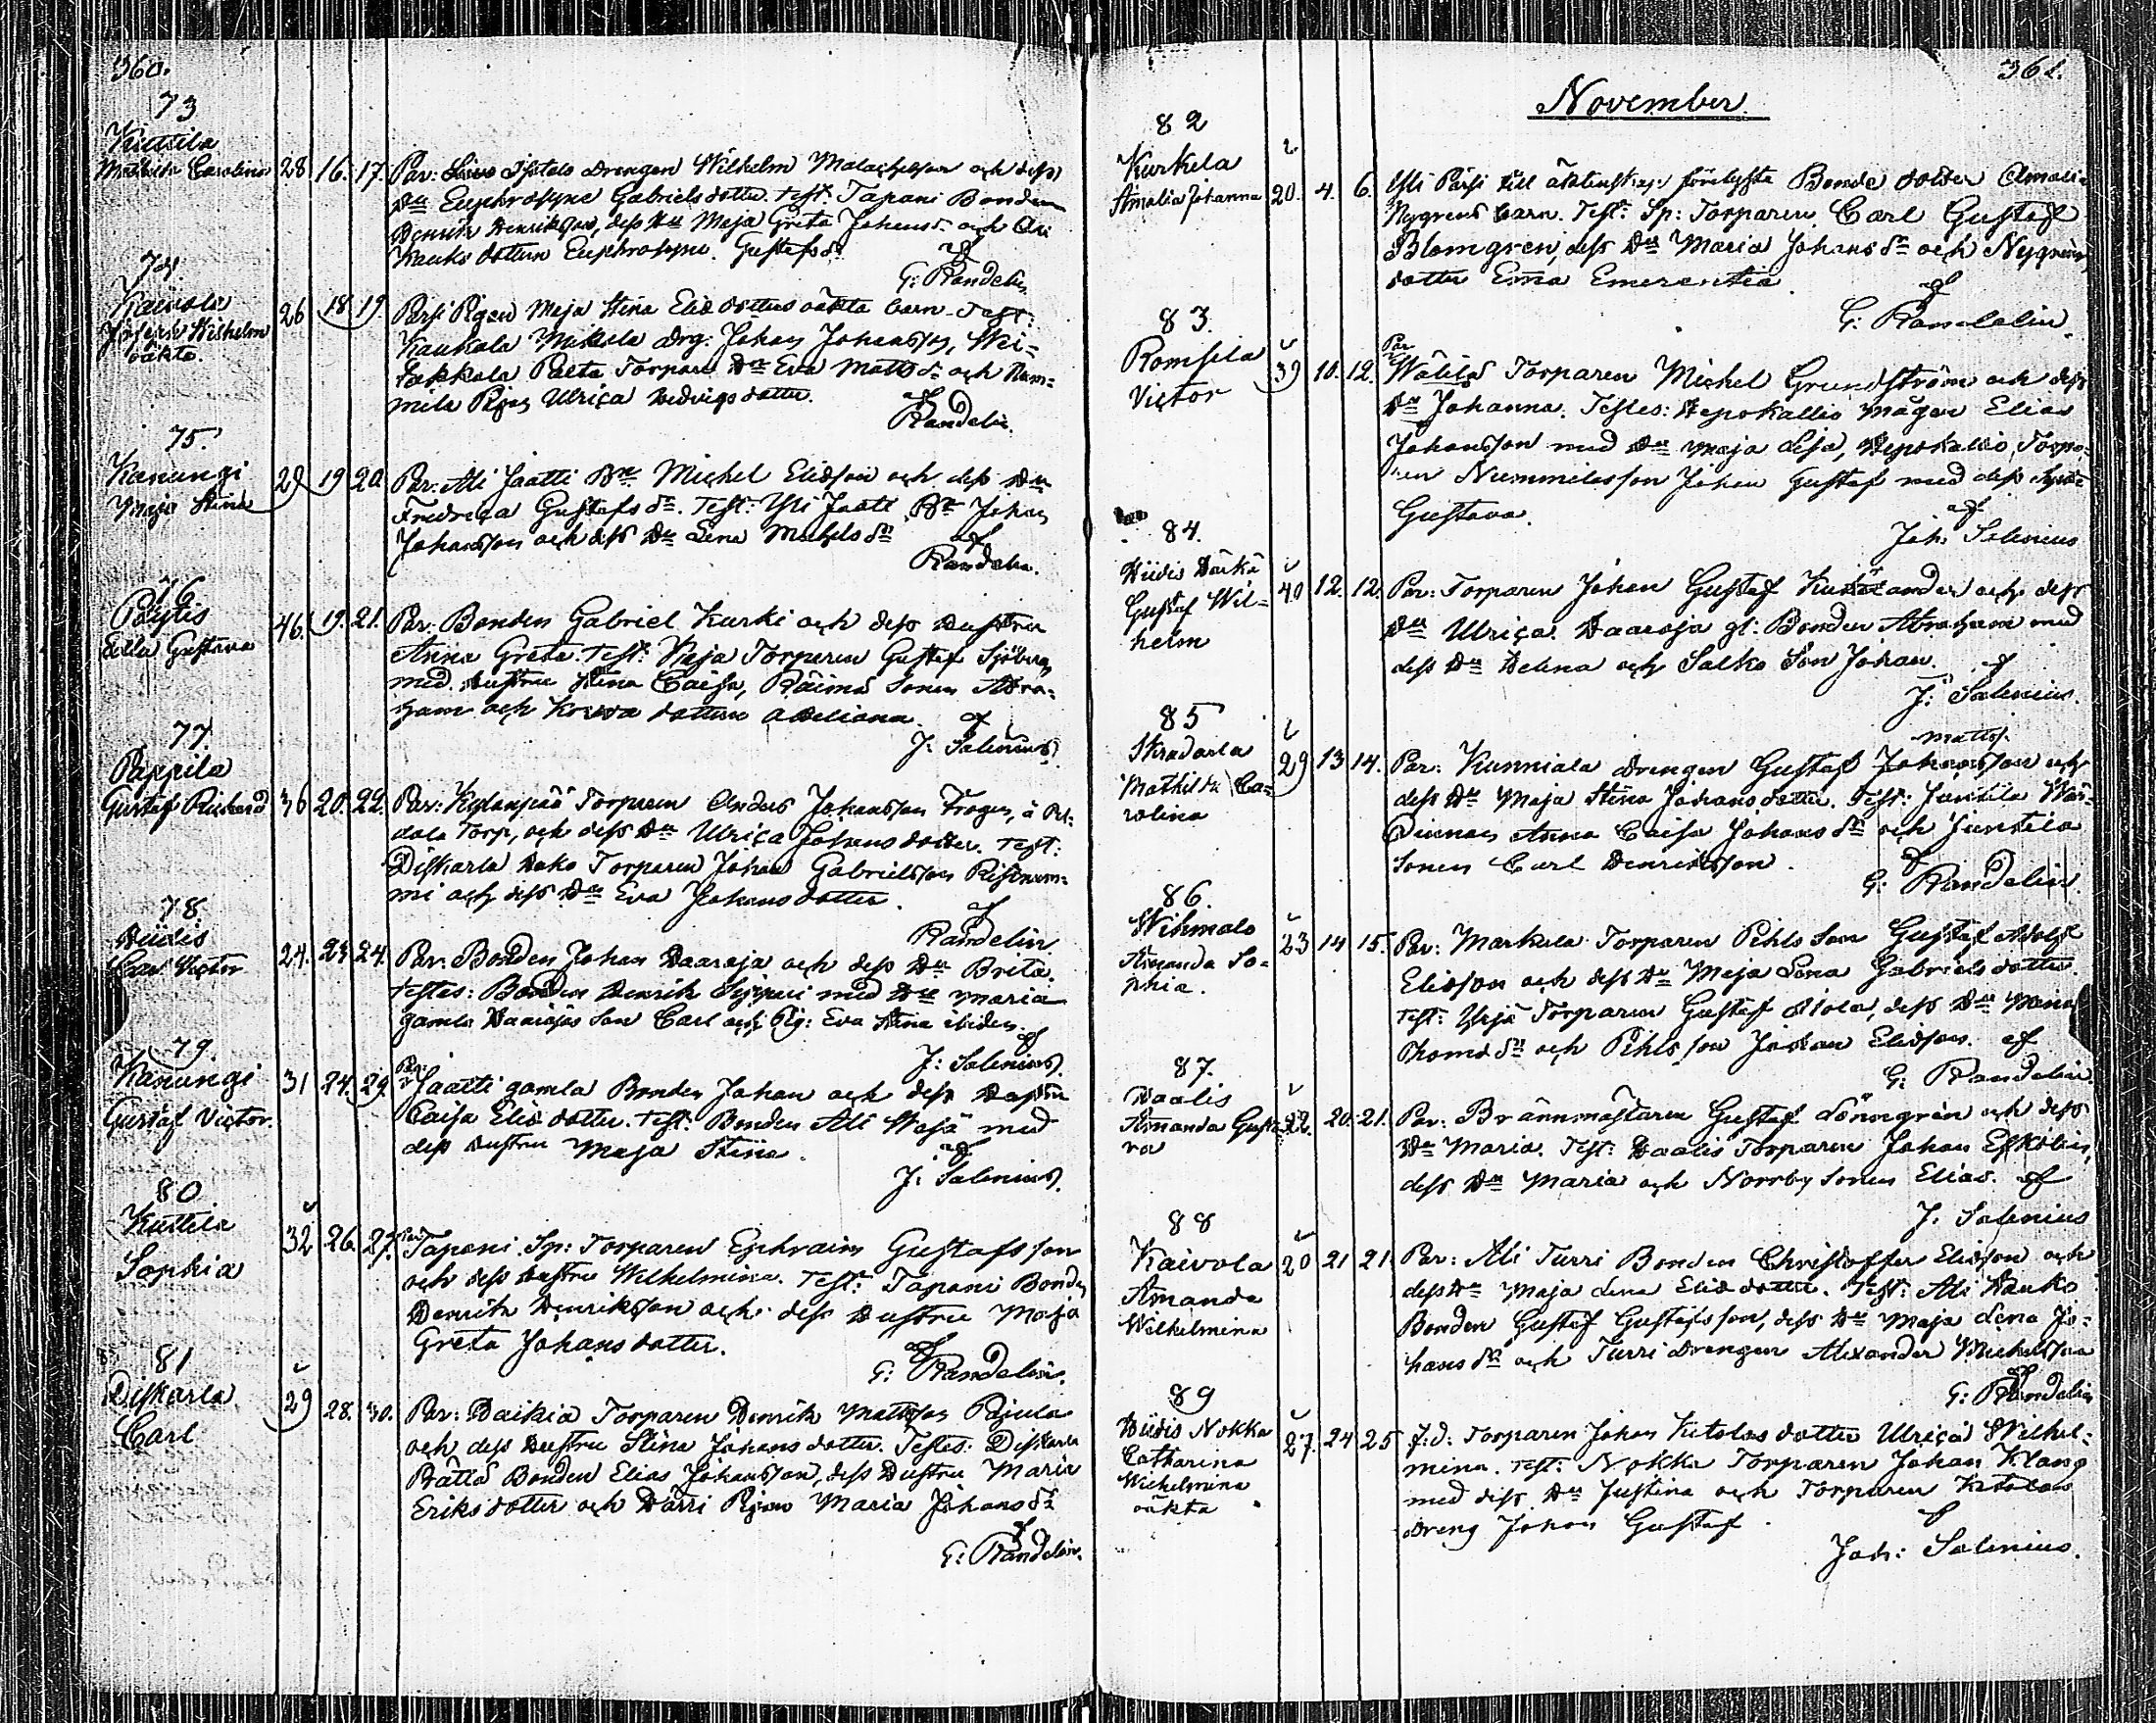 360.
73
Kuttila
Mathilda Carolina 28 16. 17. Par: Istala drengen Wilhelm Malachiesson och dess
Hu Euphrosyne Gabrielsdotter. Test: Tapani Bonden
Henrik Henriksson, dess Hu Maja Greta Johansd. och Ali
Kauko dottern Euphrosyne Gustafsdr
af
G: Randelin
74.
Kaivola
Josef Wilhelm
oäkta.
26 18 19. Pärsi Pigan Maja Stina Elisdotters oäkta barn. Test:
Kaukola Mukola drg: Johan Johansson, Wei-
takkala Torpare Hu Eva Mattsdr och Num-
mila Pigan Ulrica Hedvigsdotter.
af
Randelin.
75.
Kanungi
Maja Stina
29 19 20 Par: Ali Jaatti Bn Michel Eliesson och dess Hu
Fredrica Gustafsdr. Test: Yli Jaatti Bn Johan
Johansson och dess Hu Lena Michelsdr
af
Randelin.
76
Pöytis
Edla Gustava
46. 19. 21. Par: Bonden Gabriel Kurki och dess Hustru
Anna Greta. Test: Torparen Gustaf Sjöberg
med Hustru Stina Caisa, Räimä Sonen Abra-
ham och dottern Adeliana. af
J: Salenius
77.
Pappila
Gustaf Richard 36 20. 22. Par: Kylänpää Torparen Anders Johansson Frogen, å
Torp, och dess Hu Ulrica Johansdotter. Test:
Diskarla Torparen Johan Gabrielsson Ristnum-
mi och dess Hu Eva Johansdotter.
af
Randelin
78.
Hiidis
Carl Victor
24. 23 24. Par: Bonden Johan Haaroja och dess Hu Brita.
Testes: Bonden Henrik Seppri med Hu Maria
gamla Haarojas Son Carl och Pig: Eva Stina ibidem.
af
J: Salenius
79.
Kanungi
Gustaf Victor.
31 24. 29. Par: Jaatti gamla Bonden Johan och dess Hustru
Caisa Elisdotter. Test: Bonden Ali Wäjä med
dess Hustru Maja Stina.
af
J: Salenius
80
Kuttila
Sophia
32 26. 27. Par: Tapani Sp: Torparen Ephraim Gustafsson
och dess Hustru Wilhelmina. Test: Tapani Bonden
Henrik Henriksson och dess Hustru Maja
Greta Johansdotter.
af
G: Randelin.
81
Diskarla
Carl
29 28. 30. Par: Haikia Torparen Henrik Mattsson Pajula
och dess Hustru Stina Johansdotter. Testes: Diskarla
Rättä Bonden Elias Johansson, dess Hustru Maria
Eriksdotter och Härri Pigan Maria Johansdr
af
G: Randelin.
361.
November.
82
Kurkela
Amalia Johanna 20. 4. 6. Yli Pärsi till äktenskap förelyfta Bonde dotter Amalia
Nygrens barn. Test: Sp: Torparen Carl Gustaf
Blomgren, dess Hu Maria Johansdr och Nygrens
dotter Ema Emerentia.
af
G: Randelin
83.
Romsila
Victor
39 10. 12. Par: Wälilä Torparen Michel Grundström och dess
Hu Johanna. Testes: Hepokallio mågen Elias
Johansson med Hu Maja Lisa, Hepokallio Torpa-
ren Nummilasson Johan Gustaf med dess Hustru
Gustava.
af
Joh: Salenius
84.
Hiidis Härkä
Gustaf Wil-
helm
40 12. 12. Par: Torparen Johan Gustaf och dess
Hu Ulrica. Haaroja gl: Bonden Abraham med
dess Hu Helena och Salko Son Johan.
af
J: Salenius.
85
Skradarla
Mathilda Ca-
rolina
29 13 14. Par: Kunniala drengen Gustaf Johansson och
Matts.
dess Hu Maja Stina Johansdotter. Test: Junnila Wär-
dinnan Anna Caisa Johansdr och Junnila
Sonen Carl Henriksson.
af
G: Randelin.
86.
Wihmalo
Amanda So-
phia.
23 14 15. Par: Markula Torparen Pihls Son Gustaf Adolf
Eliesson och dess Hu Maja Lena Gabrielsdotter.
Test: Yrjä Torparen Gustaf Aiola, dess Hu Maria
Thomasdr och Pihls son Johan Eliesson. af
G: Randelin.
87.
Haalis
Amanda Gusta-
va
22. 20. 21. Par: Brännmästaren Gustaf Lönngren och dess
Hu Maria. Test: Haalis Torparen Johan Eskolin,
dess Hu Maria och Norrby Sonen Elias. af
J: Salenius
88
Kaivola
Amanda
Wilhelmina
20 21 21. Par: Ali Turri Bonden Christoffer Eliesson och
dess Hu Maja Lena Elisdotter. Test: Ali Kauko
Bonden Gustaf Gustafsson, dess Hu Maja Lena Jo-
hansdr och Turri drengen Alexander Michelsson
af
G: Randelin
89
Hiidis Nokka
Catharina
Wilhelmina
oäkta
27. 24 25 f.d: Torparen Johan Ketolas dotter Ulrica Wilhel-
mina. Test: Nokka Torparen Johan Klang
med dess Hu Justina och Torparen Ketolas
dreng Johan Gustaf.
af
Joh: Salenius.